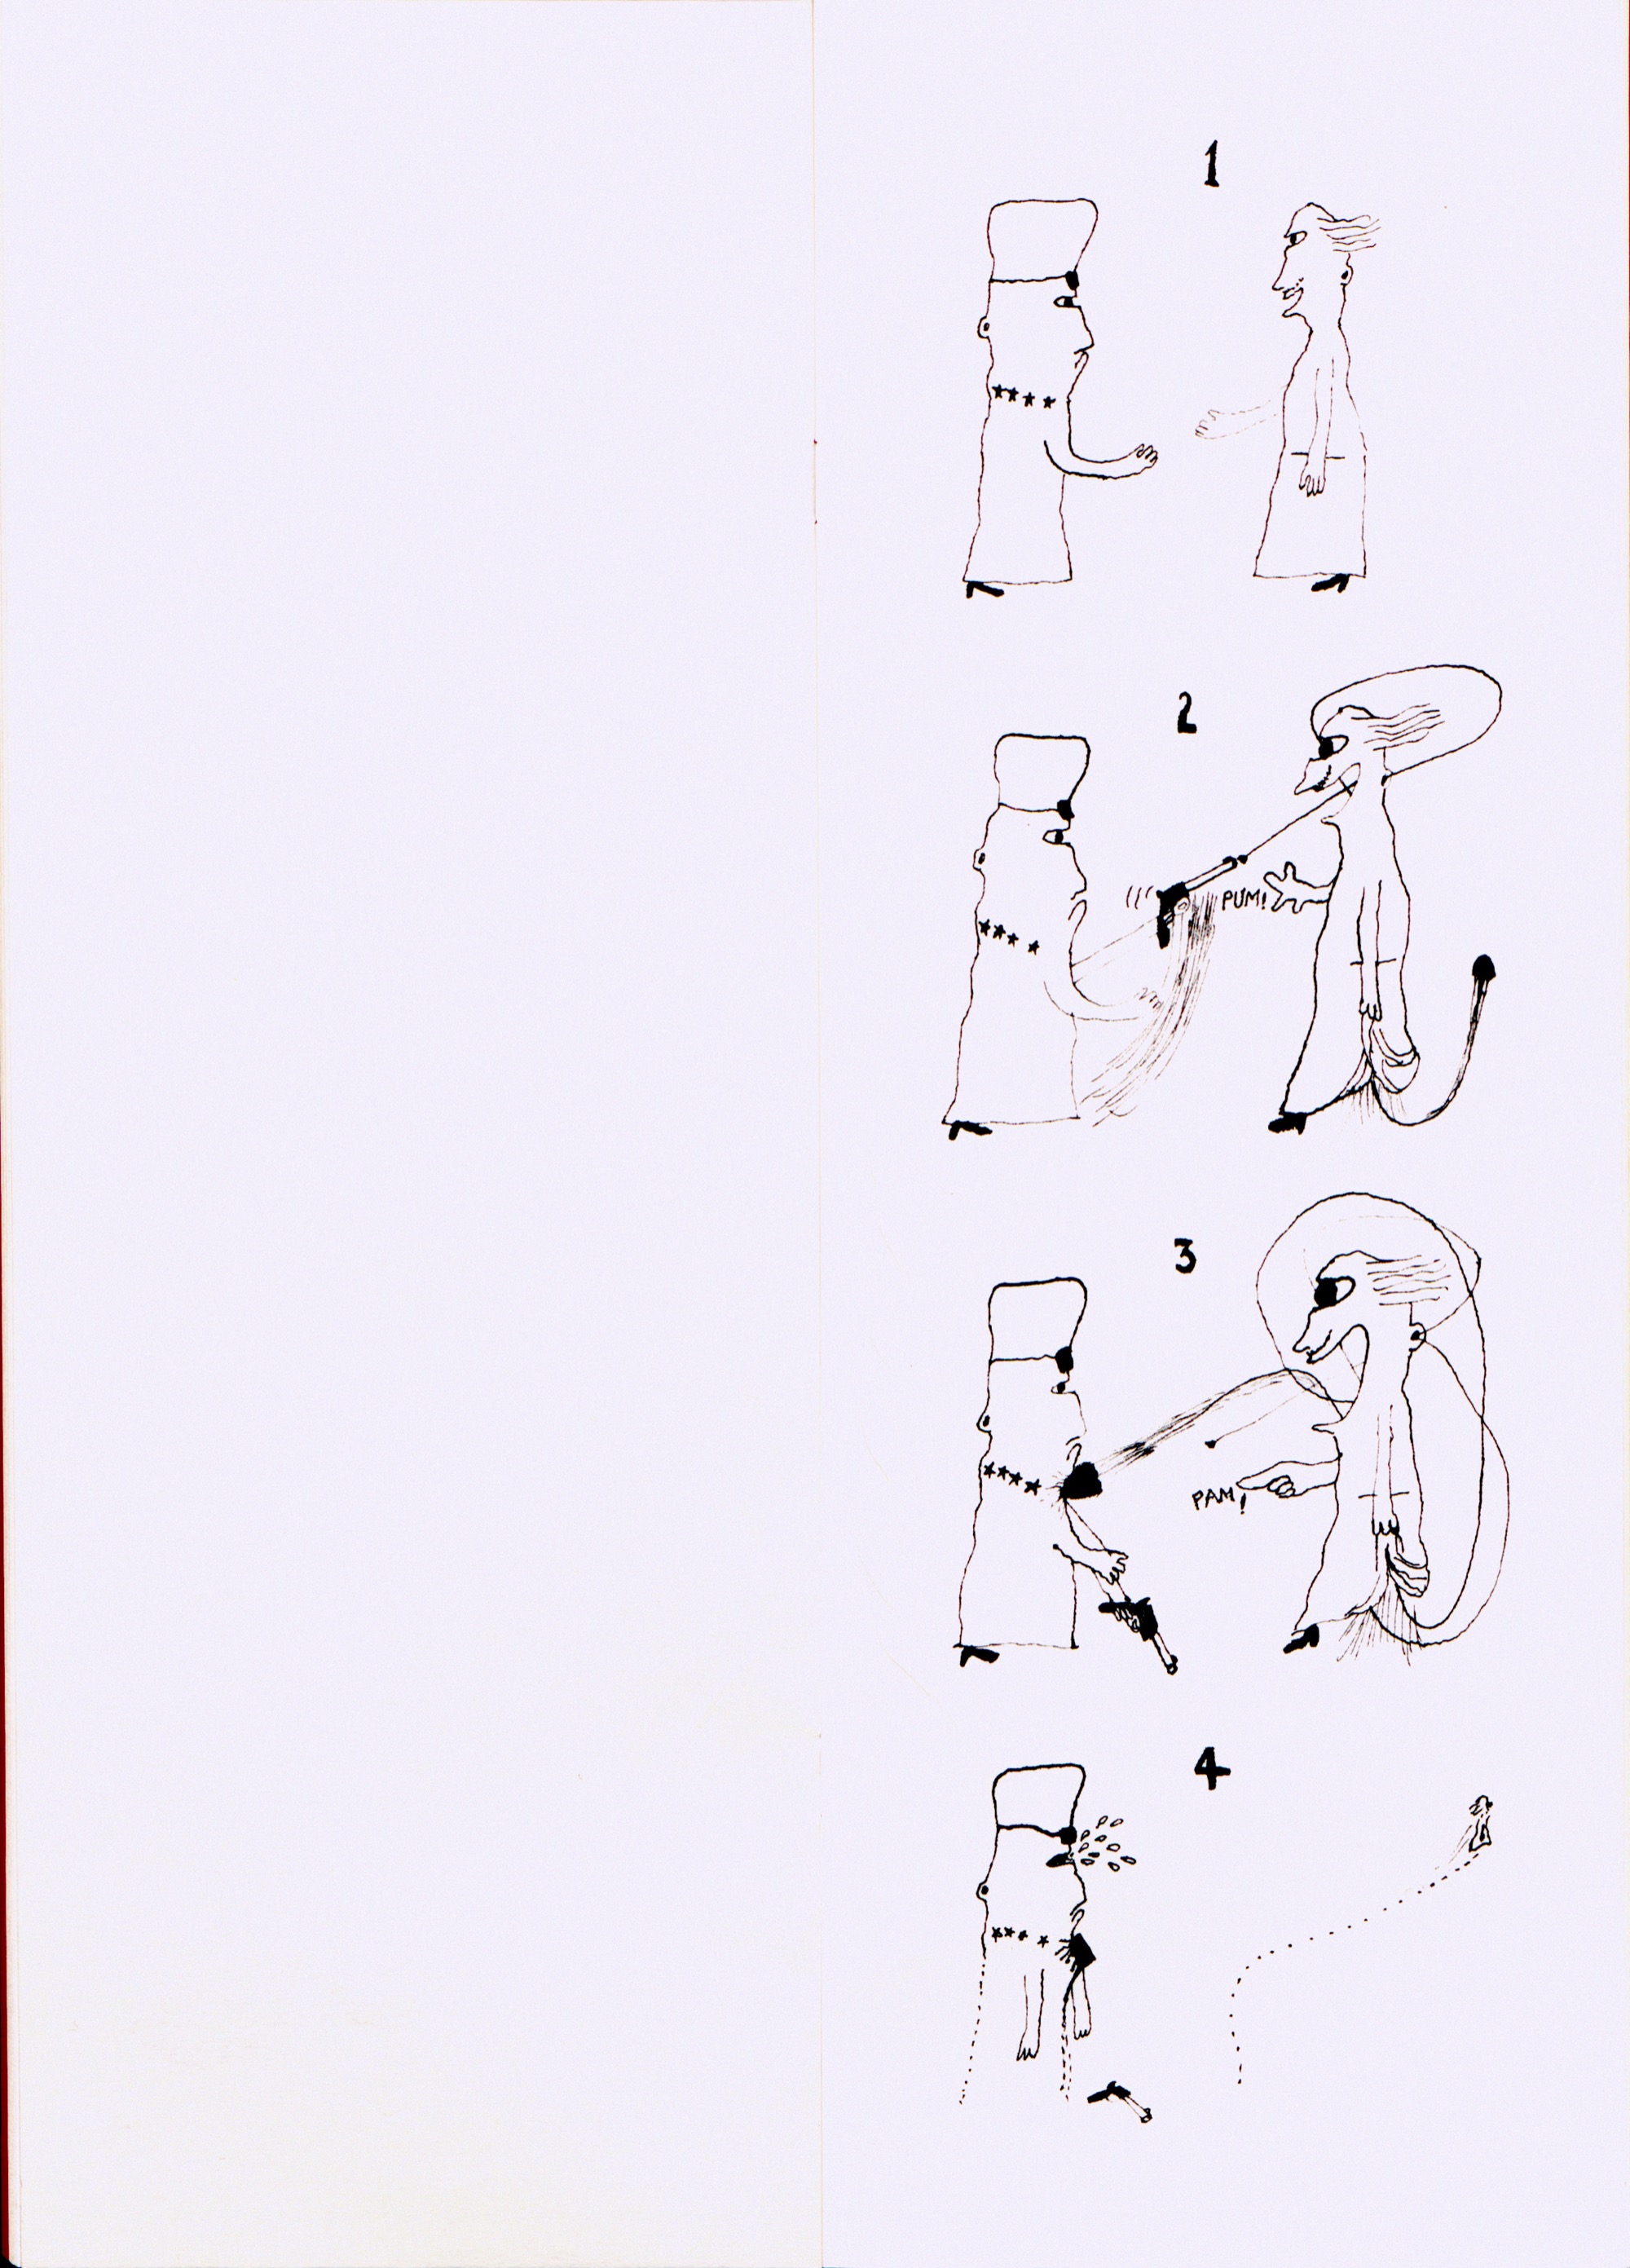 1
2
PUM!
3
PAM!
4